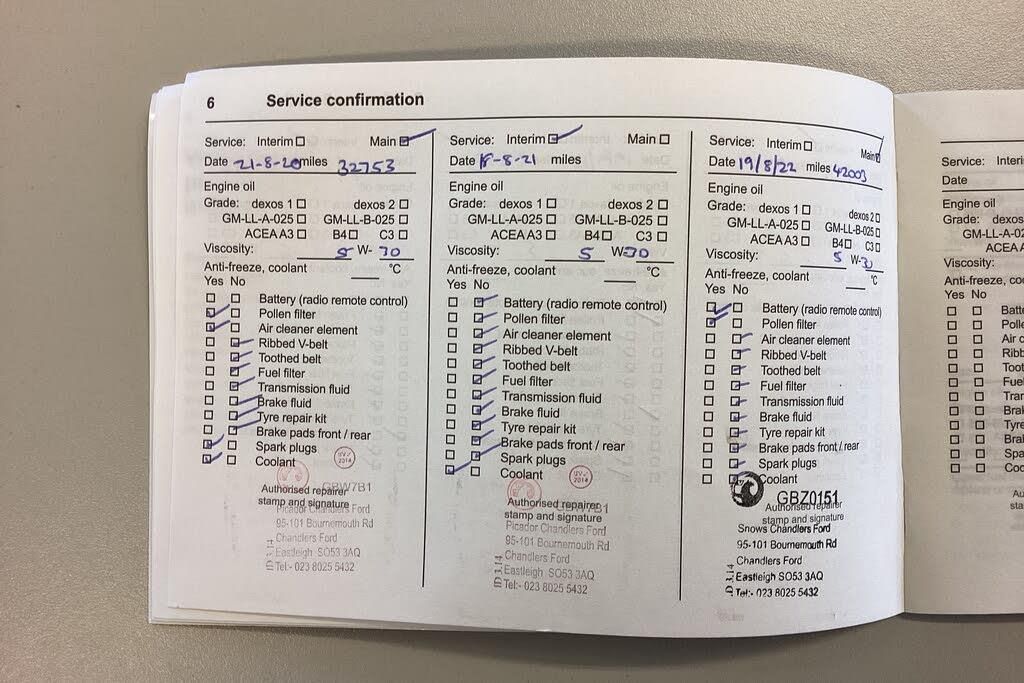 6 Service confirmation
Service: Interim Main
Date 21-8-20 miles 32753
Engine oil
Grade: dexos 1 dexos 2
GM-LL-A-025 GM-LL-B-025
ACEA A3 B4 C3
Viscosity: 5 W- 30
Anti-freeze, coolant °C
Yes No
Battery (radio remote control)
Pollen filter
Air cleaner element
Ribbed V-belt
Toothed belt
Fuel filter
Transmission fluid
Brake fluid
Tyre repair kit
Brake pads front / rear
Spark plugs
Coolant
GBW7B1
Authorised repairer
stamp and signature
Picador Chandlers Ford
95-101 Bournemouth Rd
Chandlers Ford
Eastleigh SO53 3AQ
Tel:- 023 8025 5432
Service: Interim Main
Date 18-8-21 miles
Engine oil
Grade: dexos 1 dexos 2
GM-LL-A-025 GM-LL-B-025
ACEA A3 B4 C3
Viscosity: 5 W-30
Anti-freeze, coolant °C
Yes No
Battery (radio remote control)
Pollen filter
Air cleaner element
Ribbed V-belt
Toothed belt
Fuel filter
Transmission fluid
Brake fluid
Tyre repair kit
Brake pads front / rear
Spark plugs
Coolant
Authorised repairer
stamp and signature
Picador Chandlers Ford
95-101 Bournemouth Rd
Chandlers Ford
Eastleigh SO53 3AQ
Tel:- 023 8025 5432
Service: Interim Main
Date 19/8/22 miles 42003
Engine oil
Grade: dexos 1 dexos 2
GM-LL-A-025 GM-LL-B-025
ACEA A3 B4 C3
Viscosity: 5 W-30
Anti-freeze, coolant °C
Yes No
Battery (radio remote control)
Pollen filter
Air cleaner element
Ribbed V-belt
Toothed belt
Fuel filter
Transmission fluid
Brake fluid
Tyre repair kit
Brake pads front / rear
Spark plugs
Coolant
GBZ0151
Authorised repairer
stamp and signature
Snows Chandlers Ford
95-101 Bournemouth Rd
Chandlers Ford
Eastleigh SO53 3AQ
Tel:- 023 8025 5432
Service: Interi
Date
Engine oil
Grade: dexos
GM-LL-A-02
ACEA A
Viscosity:
Anti-freeze, coo
Yes No
Batte
Polle
Air c
Ribb
Toot
Fuel
Tran
Brak
Tyre
Brak
Spa
Coo
Auth
sta